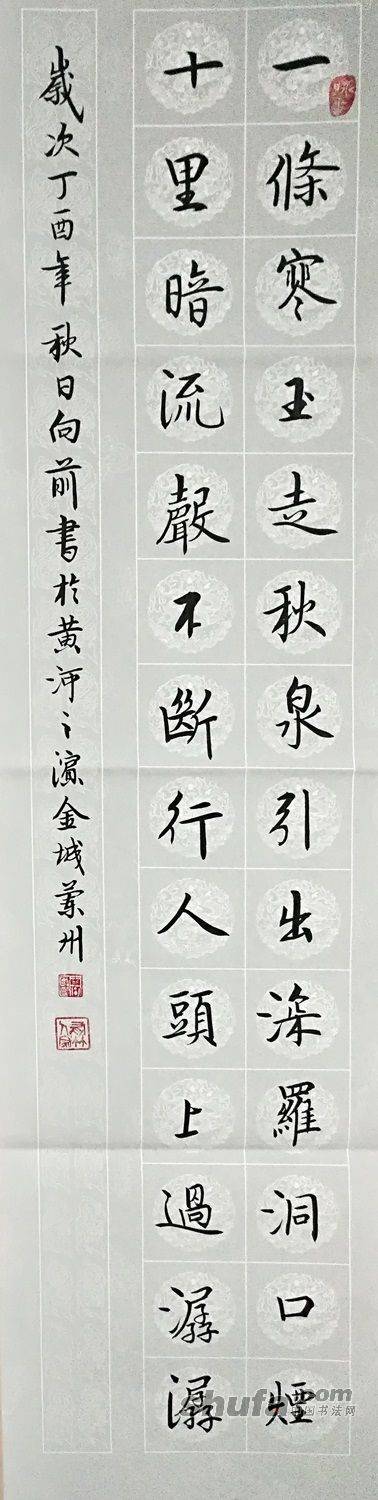 一條寒玉走秋泉引出深羅洞口煙
十里暗流聲不斷行人頭上過潺潺
歲次丁酉年秋日向前書於黄河之濵金城蘭州
中国书法网